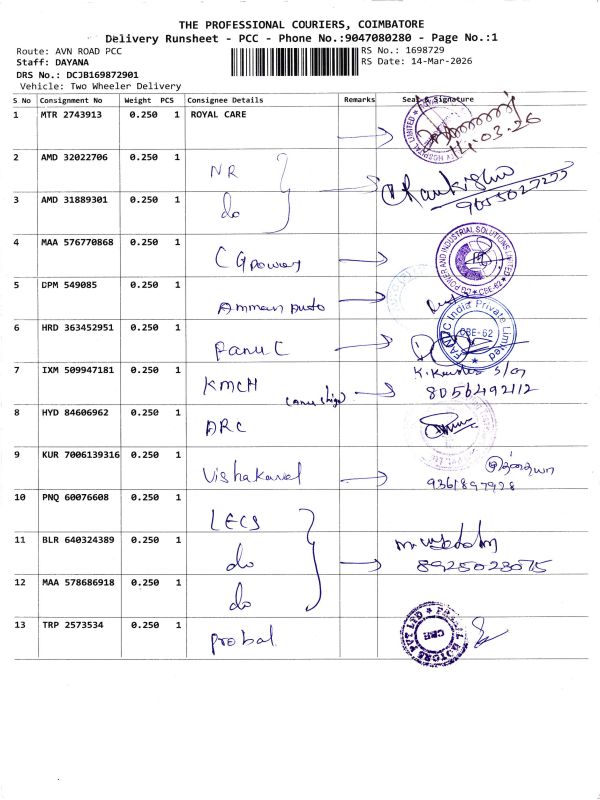 THE PROFESSIONAL COURIERS, COIMBATORE
Delivery Runsheet - PCC - Phone No.:9047080280 - Page No.:1
Route: AVN ROAD PCC
RS No.: 1698729
Staff: DAYANA
RS Date: 14-Mar-2026
DRS No.: DCJB169872901
Vehicle: Two Wheeler Delivery
S No Consignment No Weight PCS Consignee Details Remarks Seal & Signature
1 MTR 2743913 0.250 1 ROYAL CARE
14.03.26
2 AMD 32022706 0.250 1 NR
3 AMD 31889301 0.250 1 do
4 MAA 576770868 0.250 1 CG Power
POWER AND INDUSTRIAL SOLUTIONS LIMITED
CBE-62
5 DPM 549085 0.250 1 Amman Auto
6 HRD 363452951 0.250 1 Fanuc
FANUC India Private Limited
CBE-62
7 IXM 509947181 0.250 1 KMCH
8056492112
8 HYD 84606962 0.250 1 ARC
9 KUR 7006139316 0.250 1 Vishakaval
9361897928
10 PNQ 60076608 0.250 1 LECS
11 BLR 640324389 0.250 1 do
8925023075
12 MAA 578686918 0.250 1 do
13 TRP 2573534 0.250 1 Probal